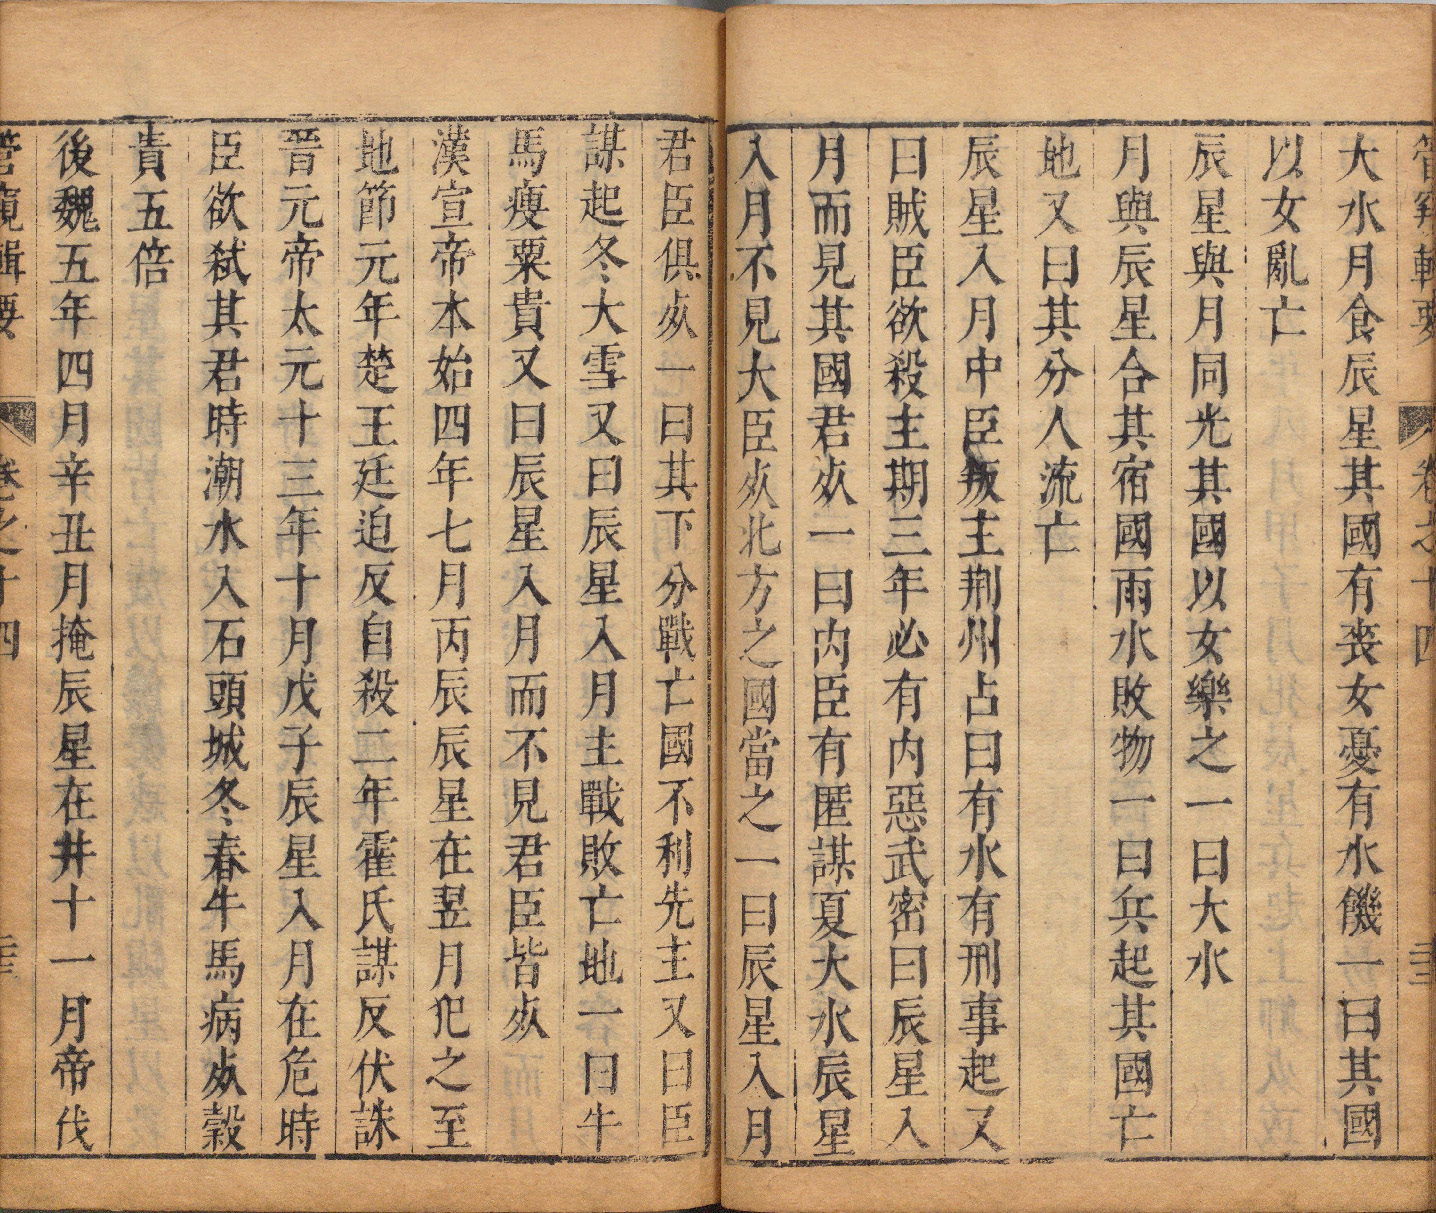 管窺輯要 卷之十四 三十三
大水月食辰星其國有喪女憂有水饑一曰其國
以女亂亡
辰星與月同光其國以女樂之一曰大水
月與辰星合其宿國雨水敗物一曰兵起其國亡
地又曰其分人流亡
辰星入月中臣叛主荆州占曰有水有刑事起又
曰賊臣欲殺主期三年必有内惡武密曰辰星入
月而見其國君㱦一曰内臣有匿謀夏大水辰星
入月不見大臣㱦北方之國當之一曰辰星入月
君臣俱㱦一曰其下分戰亡國不利先主又曰臣
謀起冬大雪又曰辰星入月主戰敗亡地一曰牛
馬瘦粟貴又曰辰星入月而不見君臣皆㱦
漢宣帝本始四年七月丙辰辰星在翌月犯之至
地節元年楚王廷迫反自殺二年霍氏謀反伏誅
晉元帝太元十三年十月戊子辰星入月在危時
臣欲弒其君時潮水入石頭城冬春牛馬病㱦穀
貴五倍
後魏五年四月辛丑月掩辰星在井十一月帝伐
管窺輯要 卷之十四